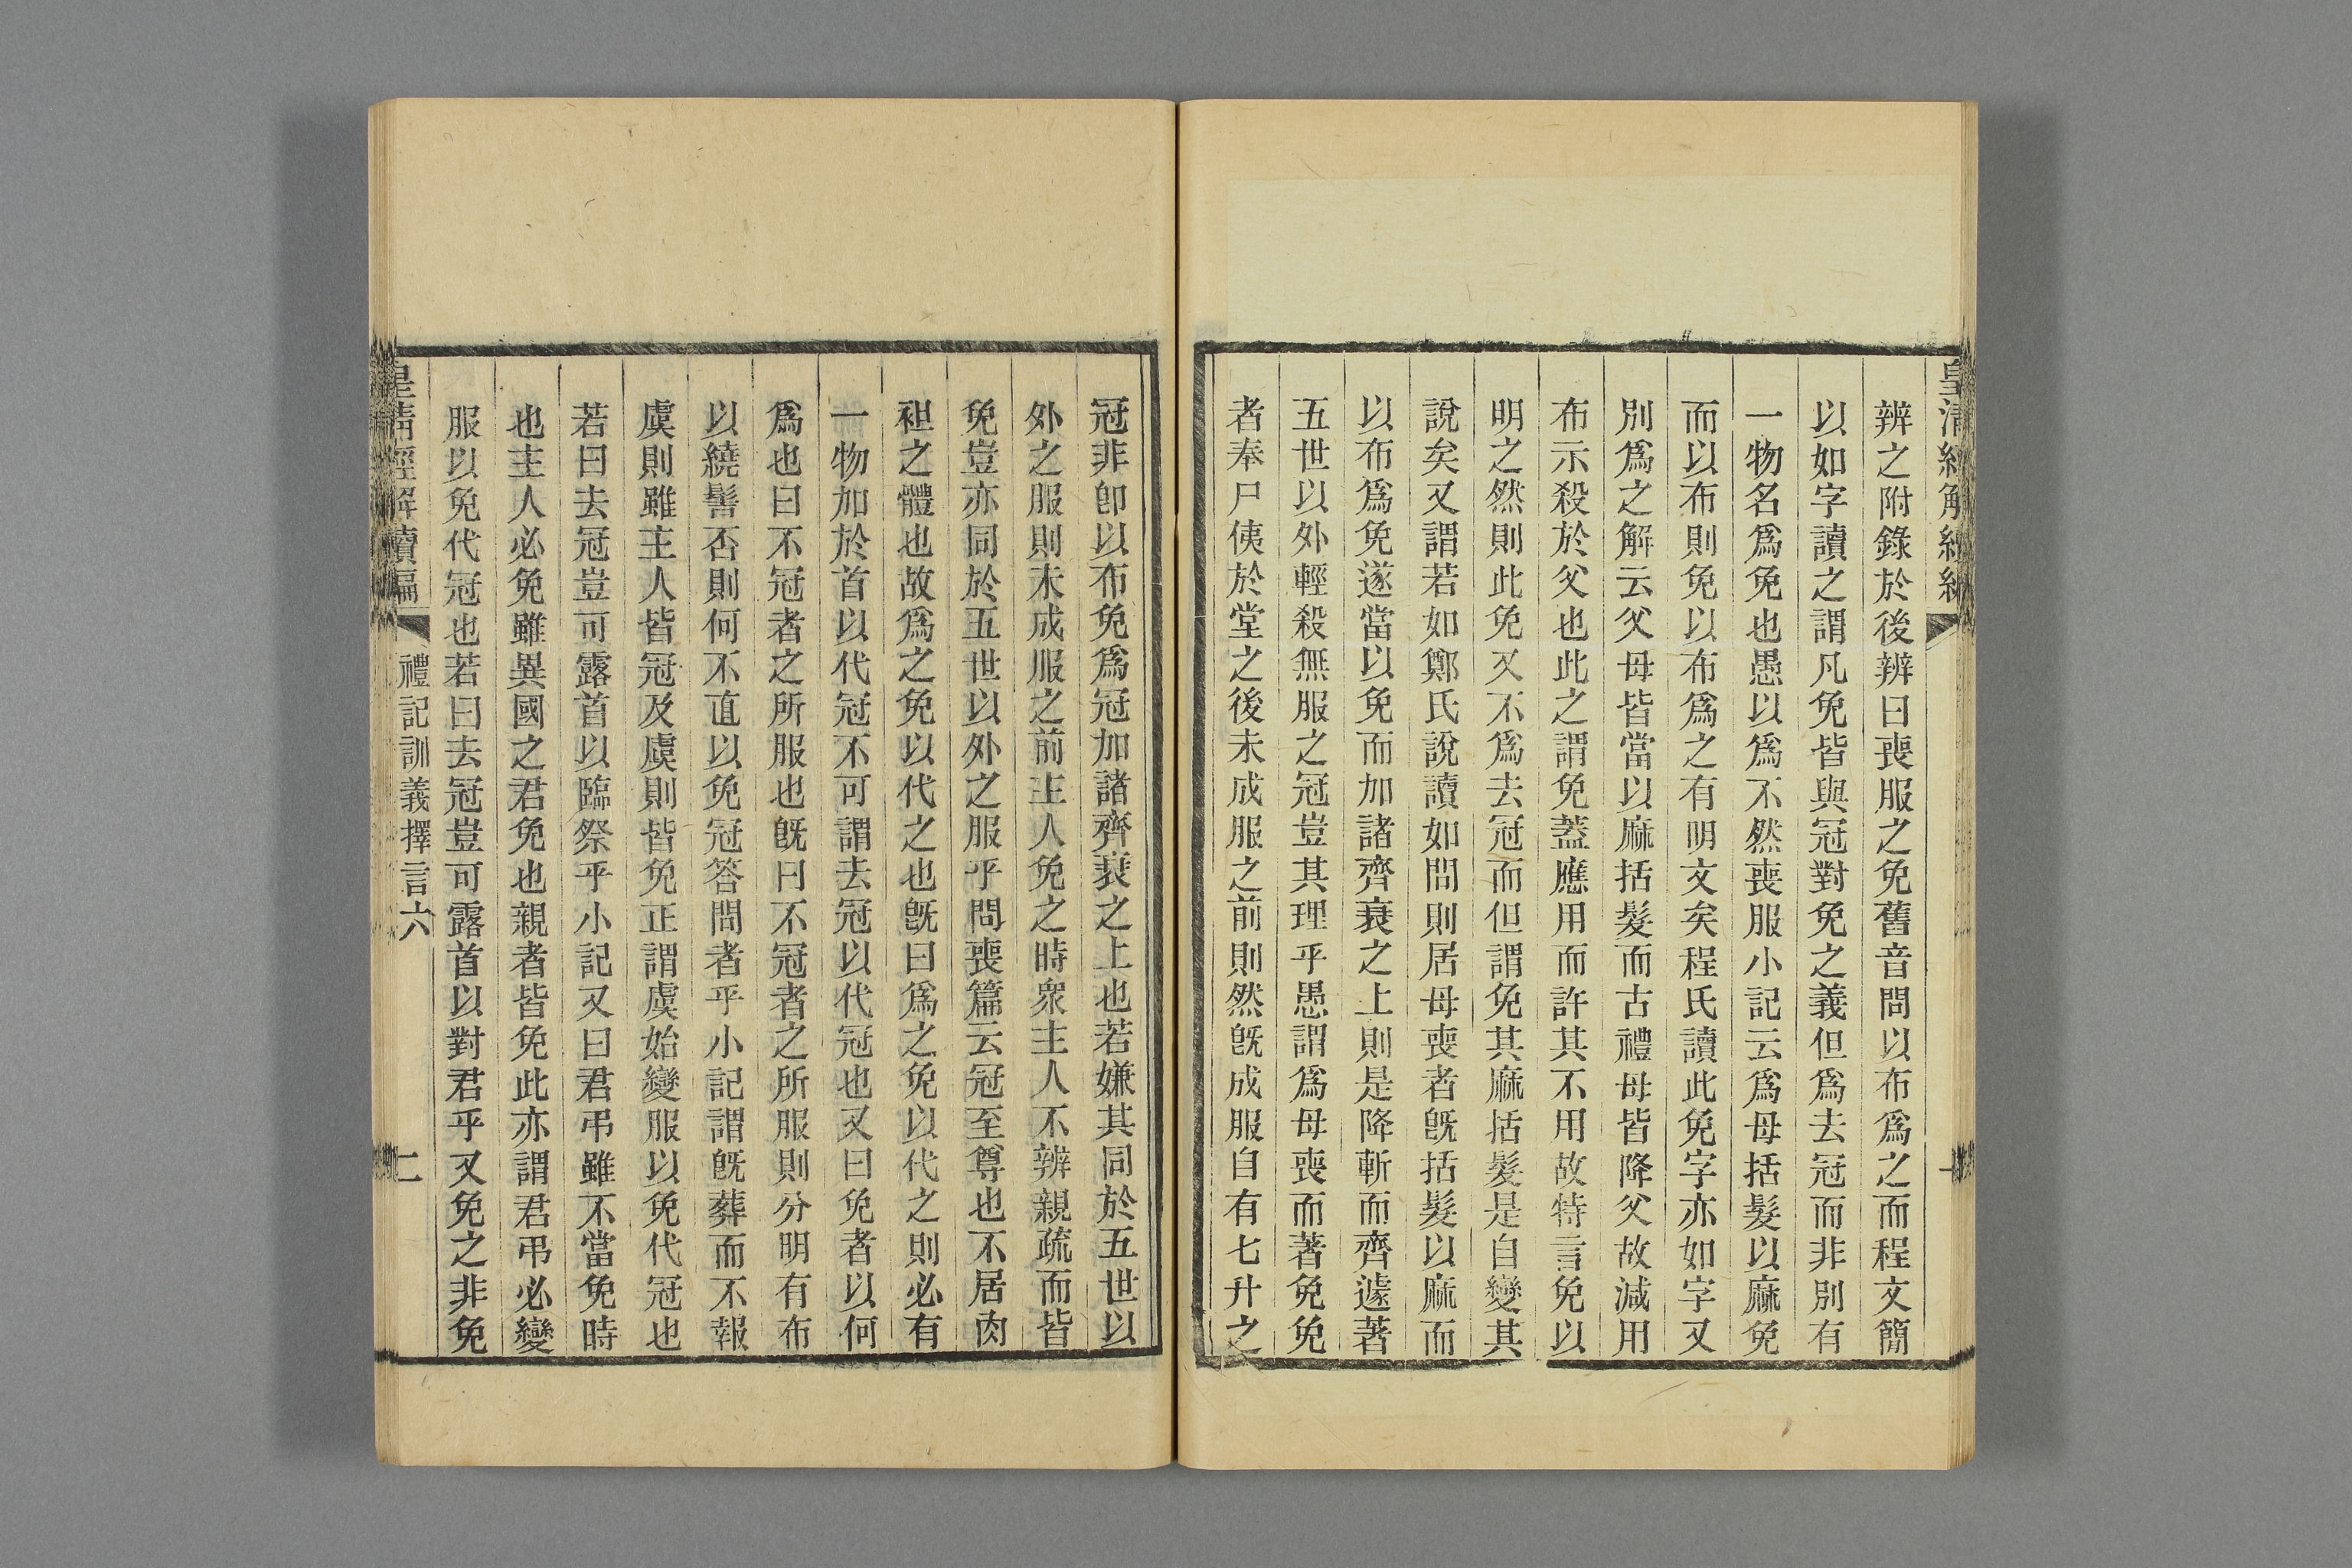 皇清經解續編
辨之附錄於後辨曰喪服之免舊音問以布爲之而程文簡
以如字讀之謂凡免皆與冠對免之義但爲去冠而非別有
一物名爲免也愚以爲不然喪服小記云爲母括髮以麻免
而以布則免以布爲之有明文矣程氏讀此免字亦如字又
別爲之解云父母皆當以麻括髮而古禮母皆降父故減用
布示殺於父也此之謂免蓋應用而許其不用故特言免以
明之然則此免又不爲去冠而但謂免其麻括髮是自變其
說矣又謂若如鄭氏說讀如問則居母喪者旣括髮以麻而
以布爲免遂當以免而加諸齊衰之上則是降斬而齊遽著
五世以外輕殺無服之冠豈其理乎愚謂爲母喪而著免免
者奉尸侇於堂之後未成服之前則然旣成服自有七升之
冠非卽以布免爲冠加諸齊衰之上也若嫌其同於五世以
外之服則未成服之前主人免之時衆主人不辨親疏而皆
免豈亦同於五世以外之服乎問喪篇云冠至尊也不居肉
袒之體也故爲之免以代之也旣曰爲之免以代之則必有
一物加於首以代冠不可謂去冠以代冠也又曰免者以何
爲也曰不冠者之所服也旣曰不冠者之所服則分明有布
以繞髻否則何不直以免冠答問者乎小記謂旣葬而不報
虞則雖主人皆冠及虞則皆免正謂虞始變服以免代冠也
若曰去冠豈可露首以臨祭乎小記又曰君弔雖不當免時
也主人必免雖異國之君免也親者皆免此亦謂君弔必變
服以免代冠也若曰去冠豈可露首以對君乎又免之非免
皇清經解續編 禮記訓義擇言六 二